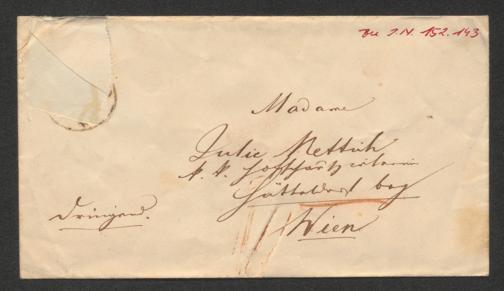 Zu I.N. 152.143
Madame
Julie Rettich
k. k. Hofschauspielerin
Hütteldorf bey
Wien
Dringend.